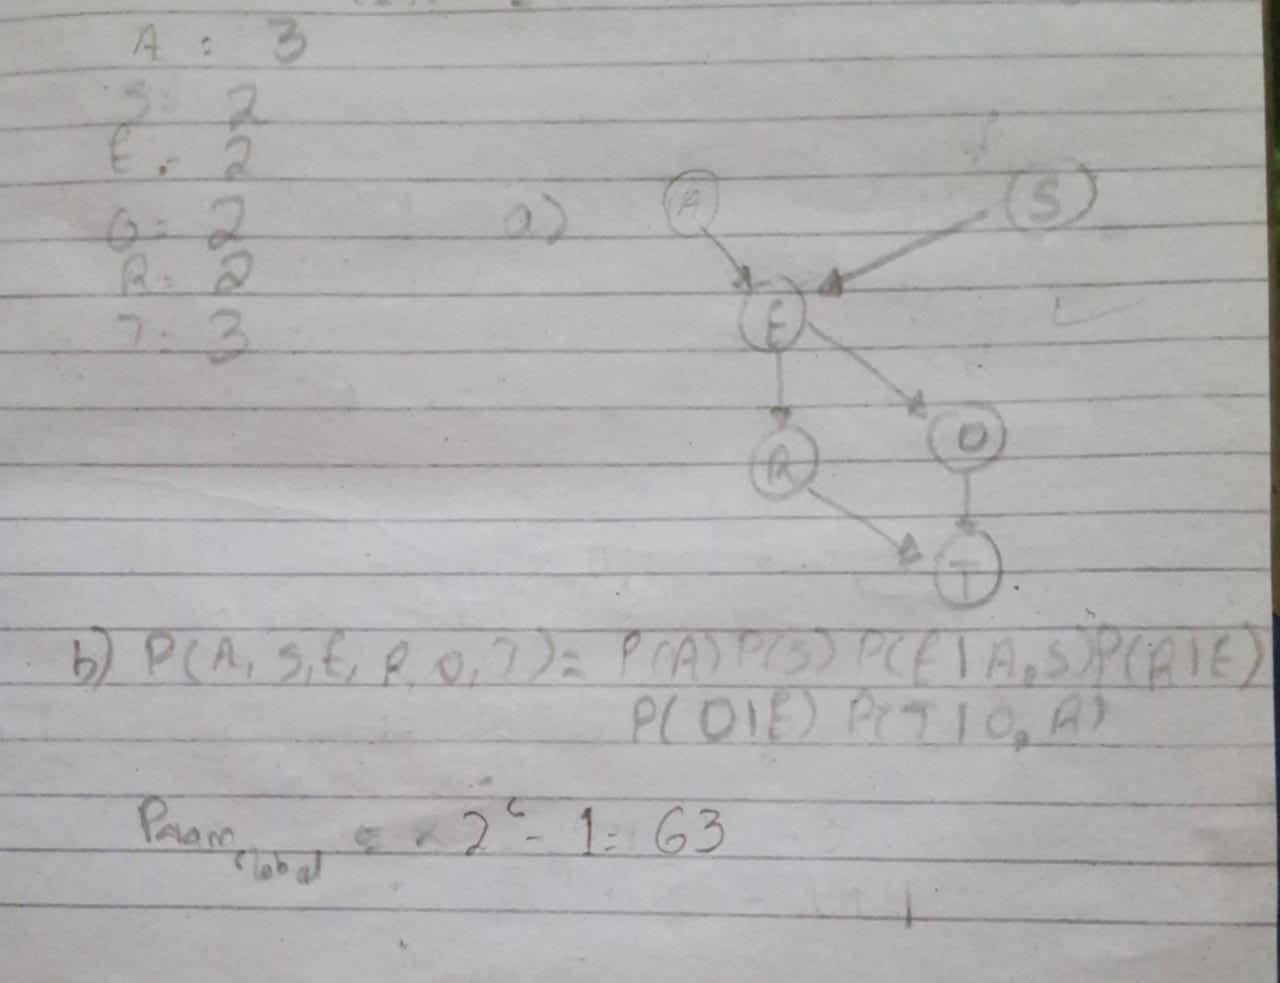 A : 3
S: 2
E: 2
O: 2
R: 2
T: 3
a)
A
S
E
R
O
T
b) P(A, S, E, R, O, T) = P(A) P(S) P(E | A, S) P(R | E)
P(O | E) P(T | O, R)
Param Global = 2^6 - 1 = 63